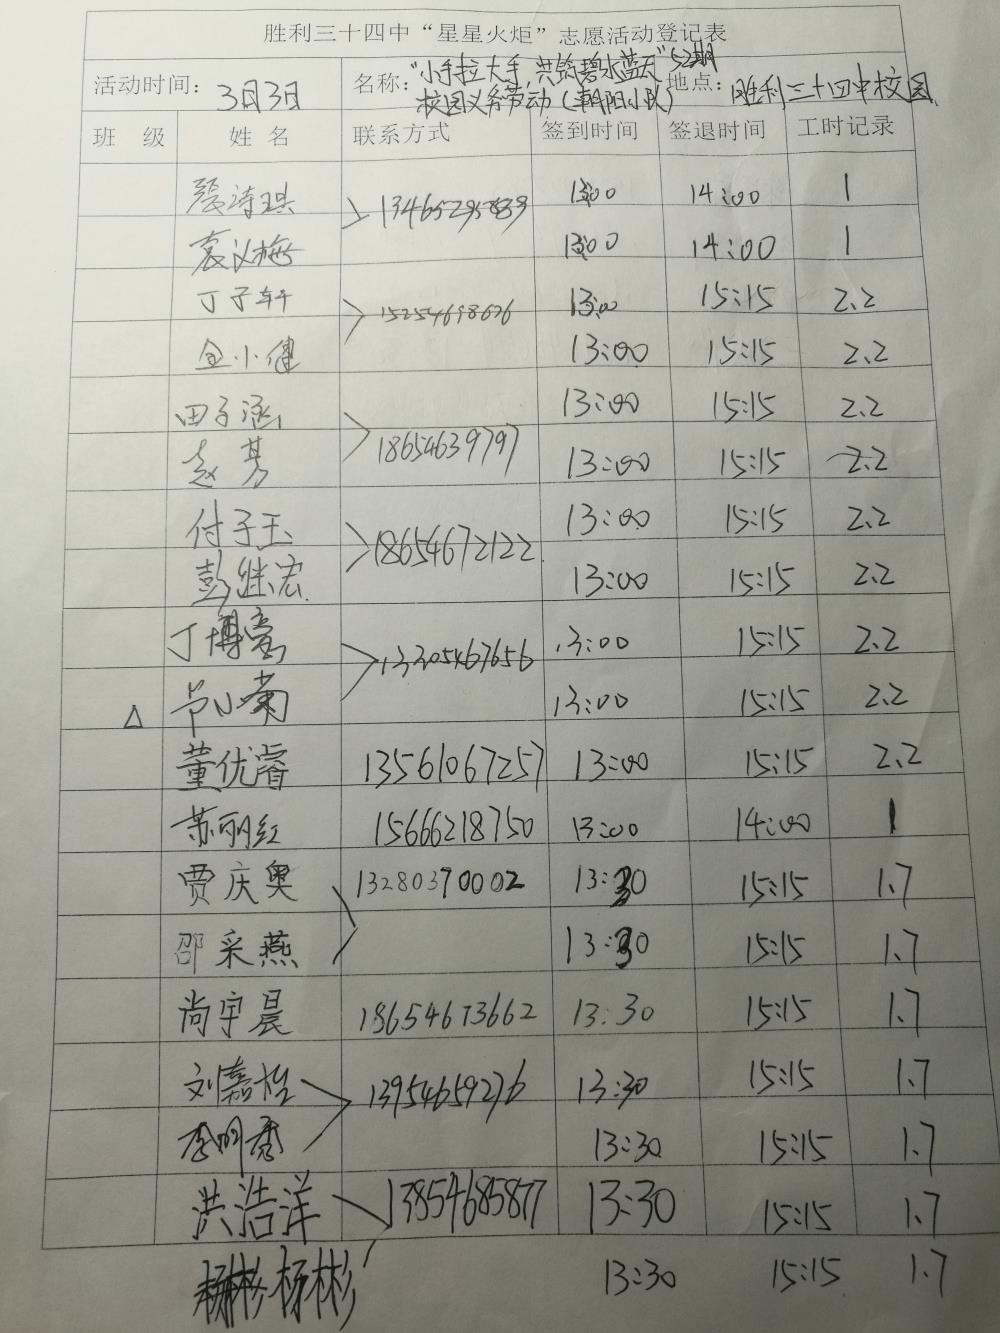 胜利三十四中“星星火炬”志愿活动登记表
活动时间：3月3日 名称：“小手拉大手，共筑碧水蓝天”52期 校园义务劳动（朝阳小队） 地点：胜利三十四中校园
班 级 姓 名 联系方式 签到时间 签退时间 工时记录
张诗琪 13:00 14:00 1
袁义梅 13:00 14:00 1
丁子轩 15254698676 13:00 15:15 2.2
金小健 13:00 15:15 2.2
田子涵 18654639797 13:00 15:15 2.2
赵芳 13:00 15:15 2.2
付子玉 18654672122 13:00 15:15 2.2
彭继宏 13:00 15:15 2.2
丁博 13305467656 13:00 15:15 2.2
△ 小菊 13:00 15:15 2.2
董优睿 13561067257 13:00 15:15 2.2
苏丽红 15666218750 13:00 14:00 1
贾庆奥 13280370002 13:30 15:15 1.7
邵采燕 13:30 15:15 1.7
尚宇晨 18654673662 13:30 15:15 1.7
刘嘉 13954659276 13:30 15:15 1.7
李明秀 13:30 15:15 1.7
洪浩洋 13854685877 13:30 15:15 1.7
杨彬 13:30 15:15 1.7